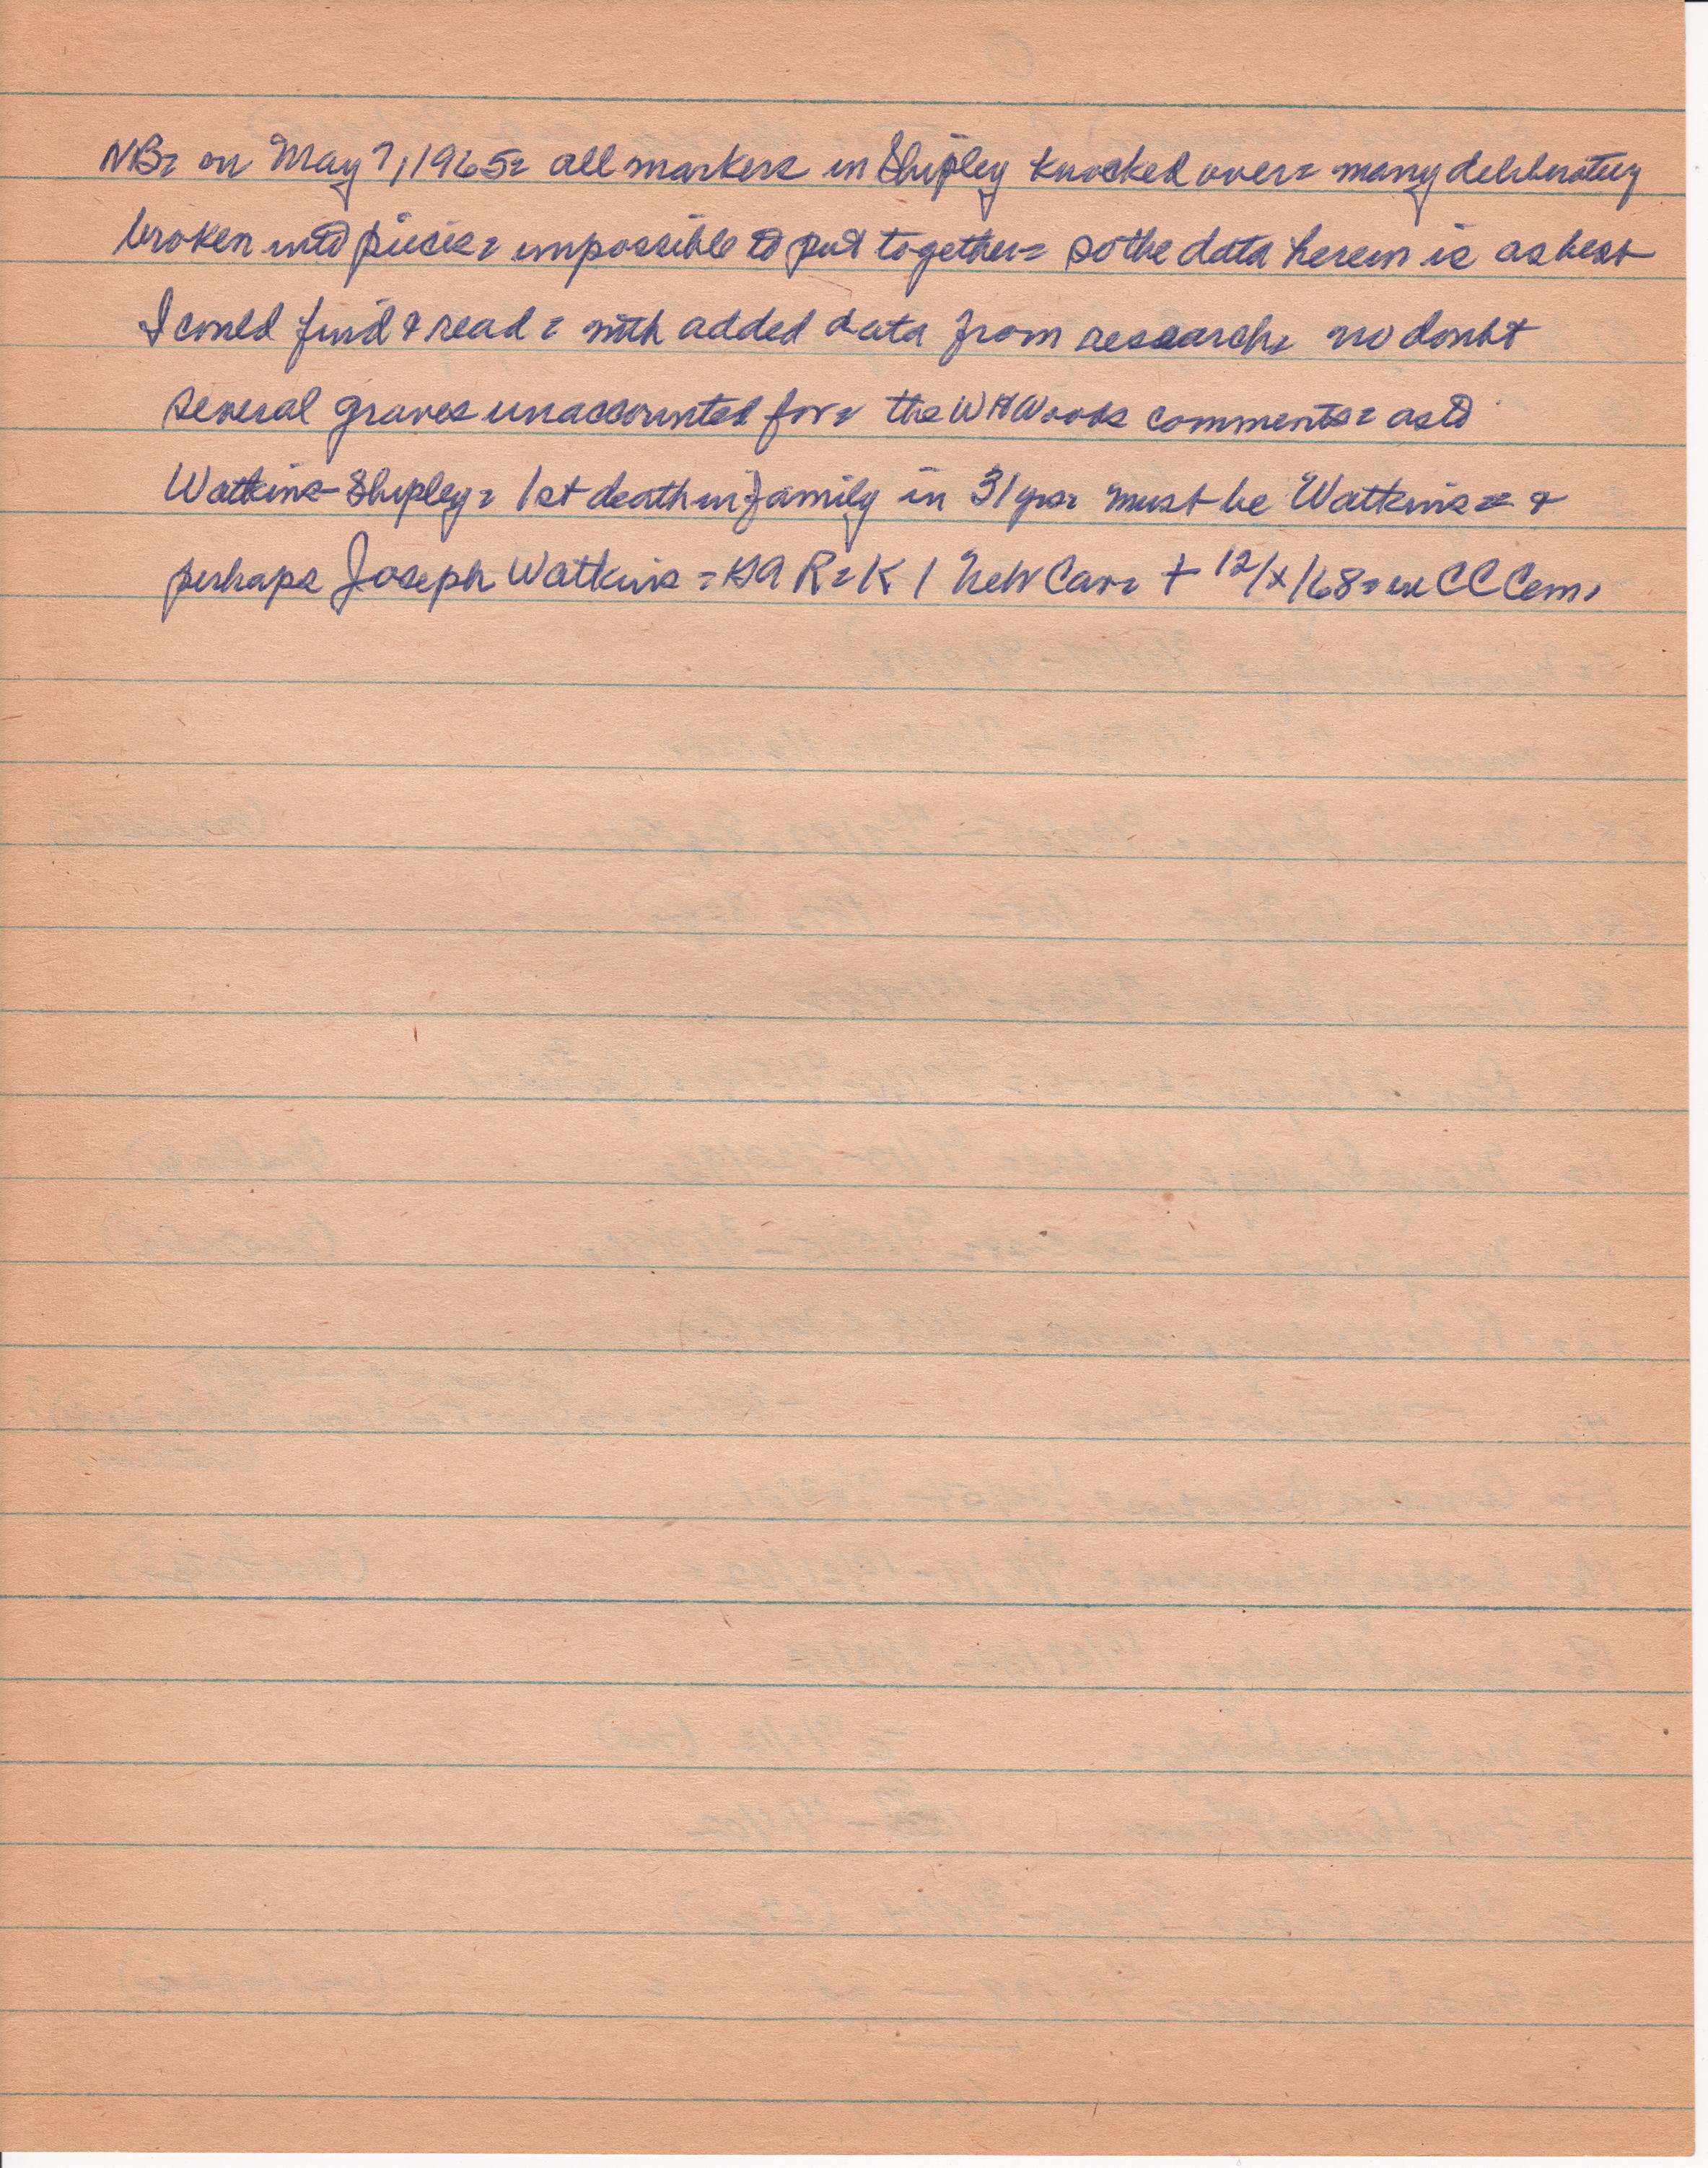 NB= on May 7, 1965= all markers in Shipley knocked over= many deliberately
broken into pieces= impossible to put together= so the data herein is as best
I could find & read= with added data from research= no doubt
several graves unaccounted for= the W H Woods comments= as to
Watkins-Shipley= 1st death in family in 31 yrs= must be Watkins= &
perhaps Joseph Watkins = K 1 N e W Cav= + 12/x/68= in CC Cem.